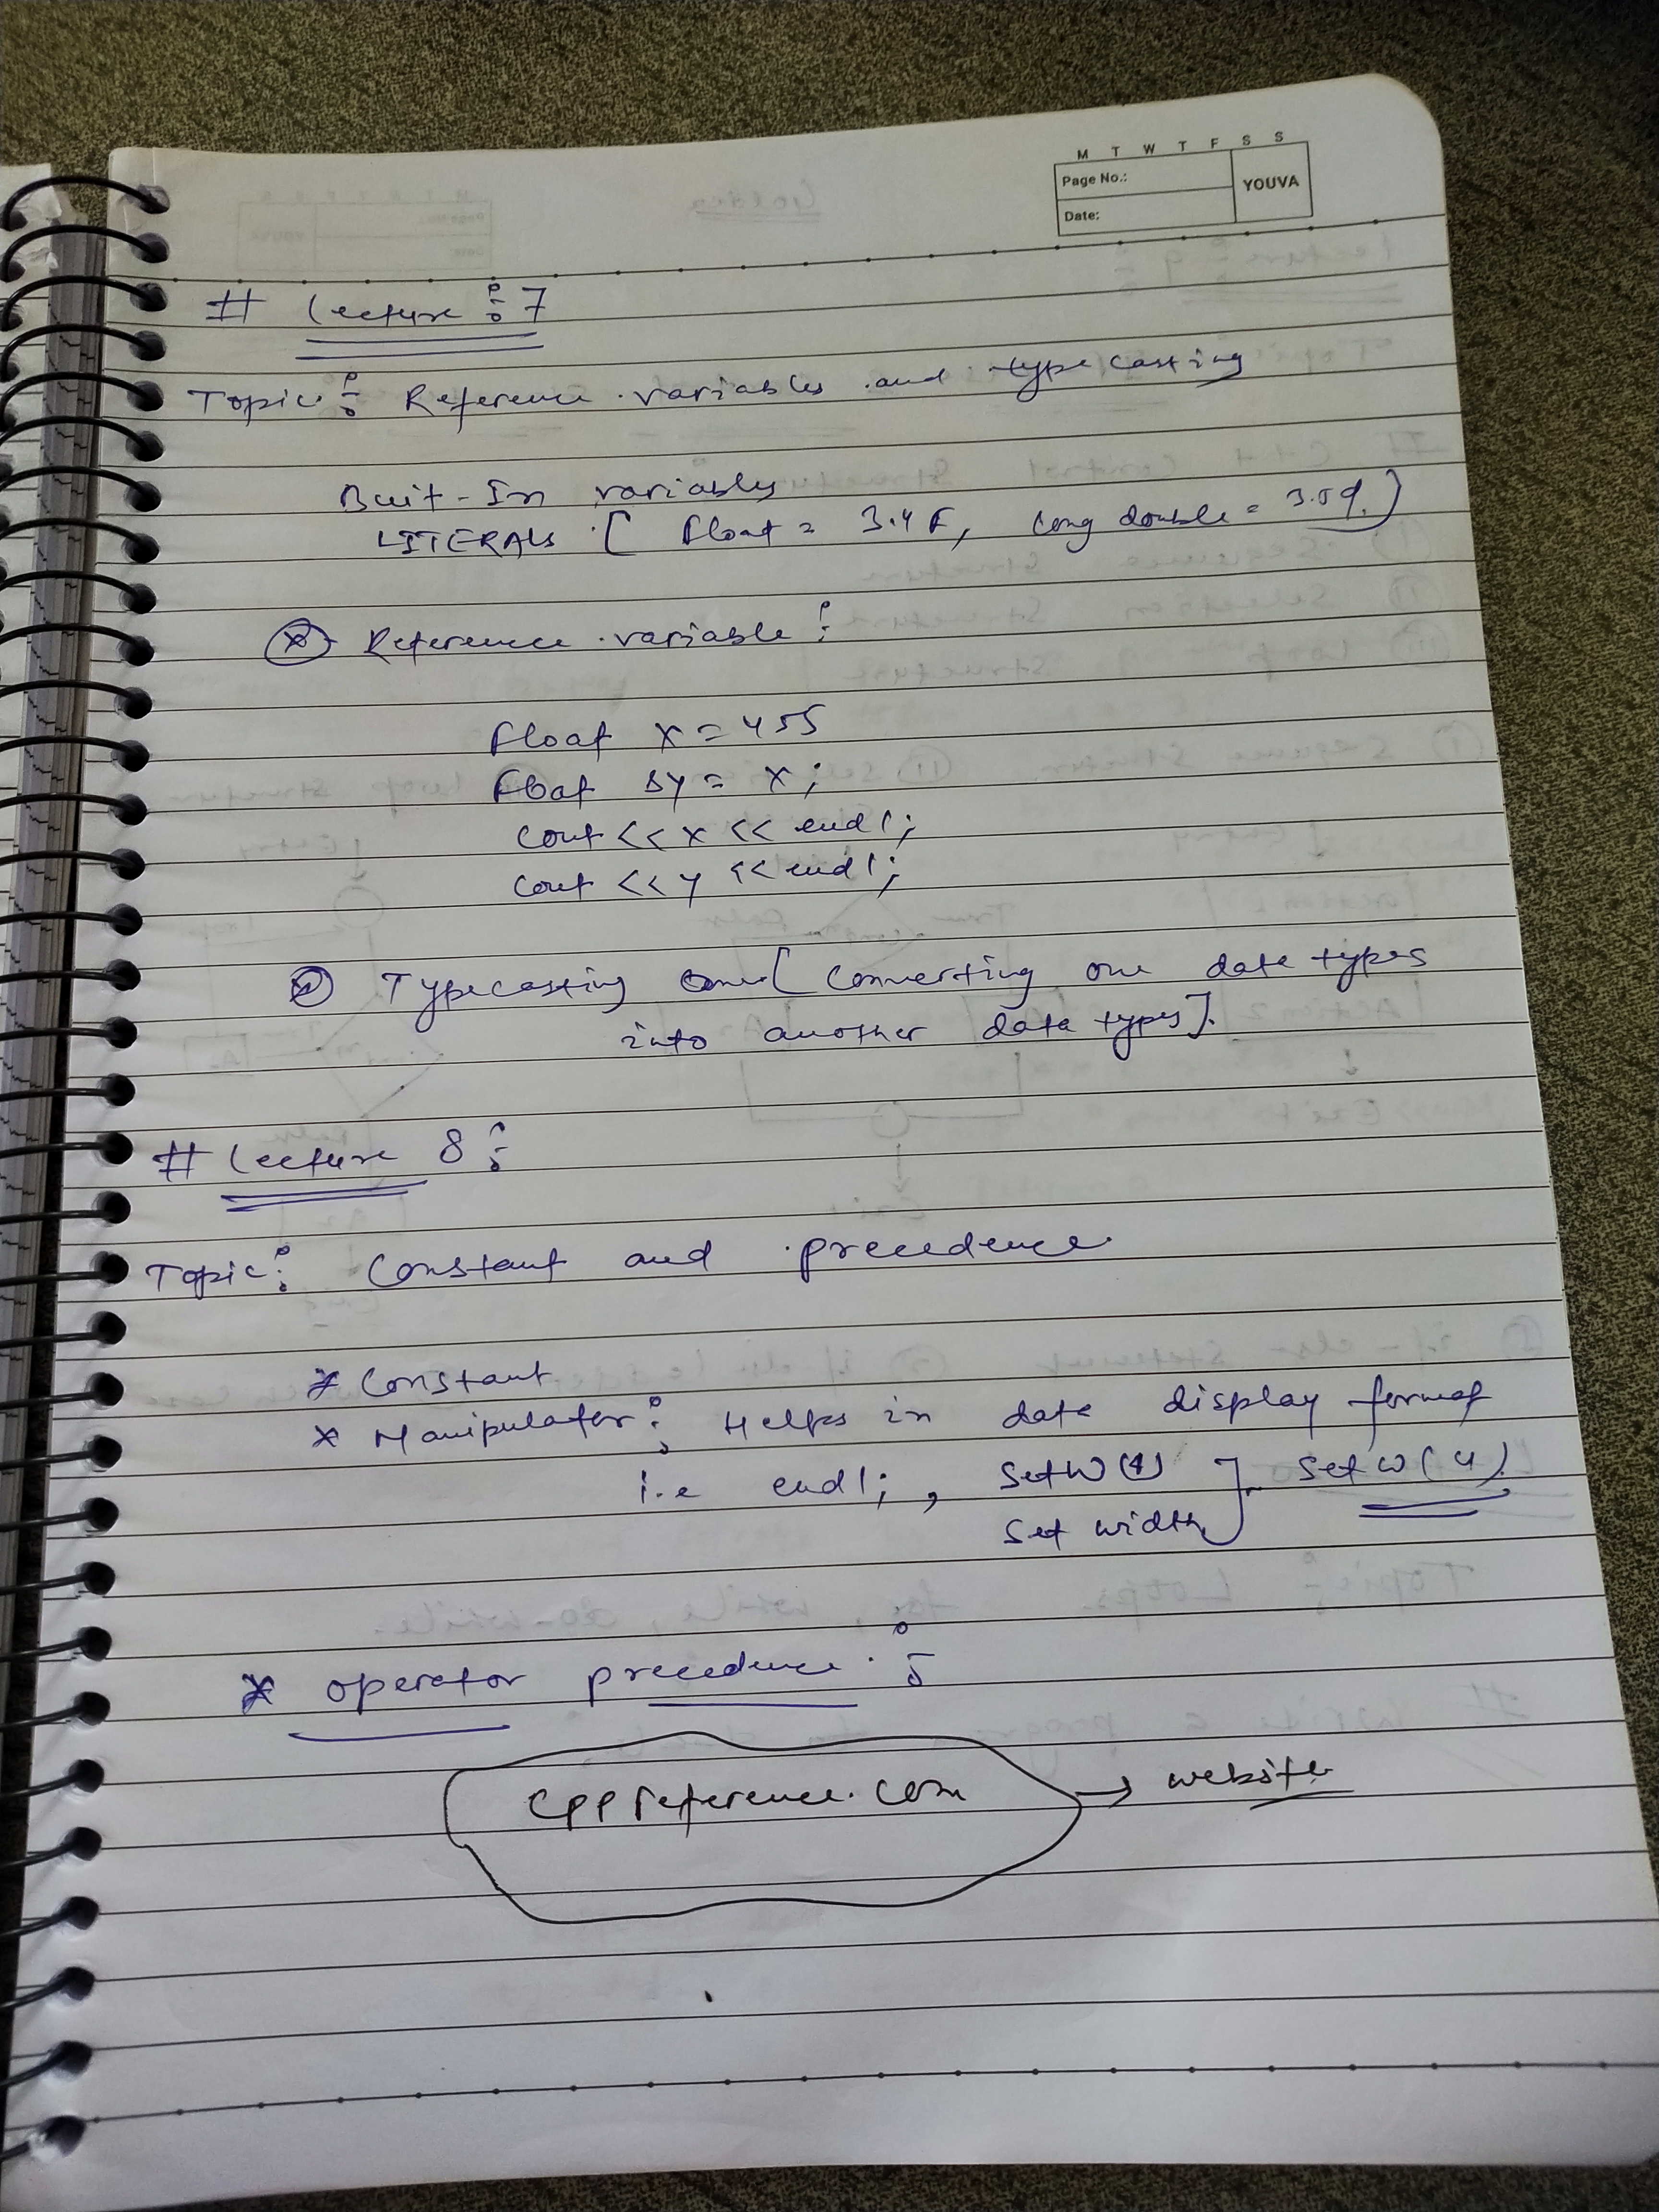 M T W T F S S
Page No.:
YOUVA
Date:
# Lecture : 7
Topic : Reference variables and typecasting
Buit-In variables
LITERALS [ float = 3.4F, long double =
* Reference variable :
float x = 455
float &y = x;
cout << x << endl;
cout << y << endl;
Typecasting [ Converting one data types
into another data types].
# Lecture 8 :
Topic : Constant and precedence
* Constant
* Manipulator : Helps in data display format
i.e endl; , setw(4) ] setw(4)
set width
* operator precedence :
cppreference.com → website